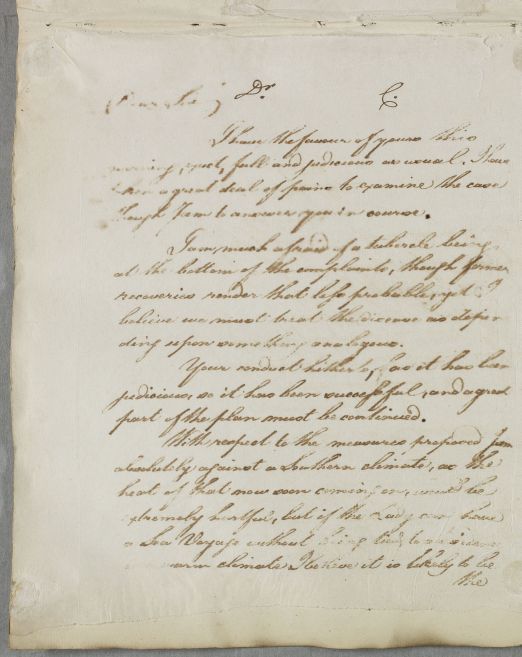 Dr C.
Dear Sir,
I have the favour of yours this
morning, full and judicious as usual. I have
taken a great deal of pains to examine the case
though I am to answer you in course.
I am much afraid of a tubercle being
at the bottom of the complaints, though former
recoveries render that less probable, yet I
believe we must treat the disease as depen
ding upon something analogous.
Your conduct hitherto, as it has been
judicious, so it has been successful, and a great
part of the plan must be continued.
With respect to the measures proposed I am
absolutely against a Southern climate, as the
heat of that now soon coming on, would be
extremely hurtful, but if the Lady can have
a Sea Voyage without being tied to
warm climate I believe it is likely to be
the